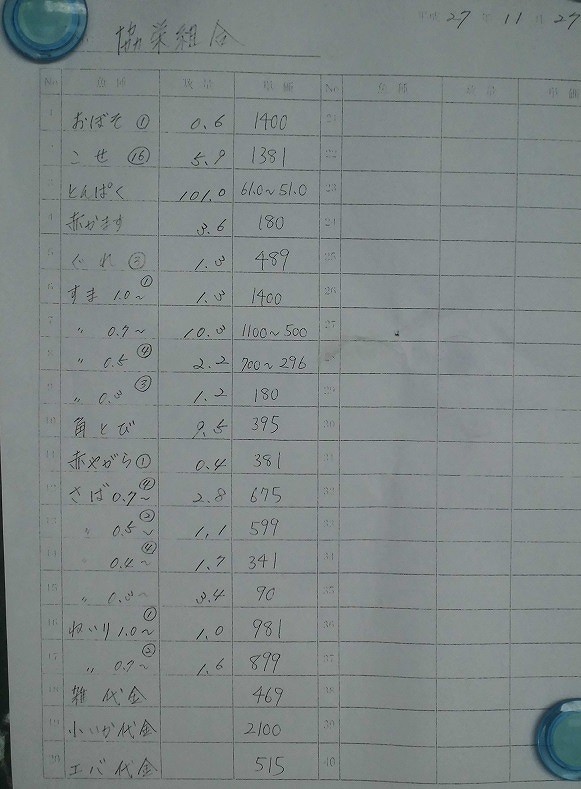 平成 27 年 11 月 27
協栄組合
No. 魚種 数量 単価 No. 魚種 数量 単価
1 おぼそ ① 0.6 1400 21
2 こせ ⑯ 5.9 1381 22
3 とんぱく 101.0 61.0~51.0 23
4 赤かます 3.6 180 24
5 ぐれ ③ 1.3 489 25
6 すま 1.0~ ① 1.3 1400 26
7 〃 0.7~ 10.3 1100~500 27
8 〃 0.5 ④ 2.2 700~296
9 〃 0.3 ③ 1.2 180 29
10 角とび 9.5 395 30
11 赤やがら ① 0.4 381 31
12 さば 0.7~ ④ 2.8 675 32
13 〃 0.5~ ② 1.1 599 33
14 0.4~ ④ 1.7 341 34
15 〃 3.4 90 35
16 ねいり 1.0~ ① 1.0 981 36
17 〃 0.7~ ② 1.6 899 37
18 雑代金 469 38
19 小いか代金 2100 39
20 エバ代金 515 40